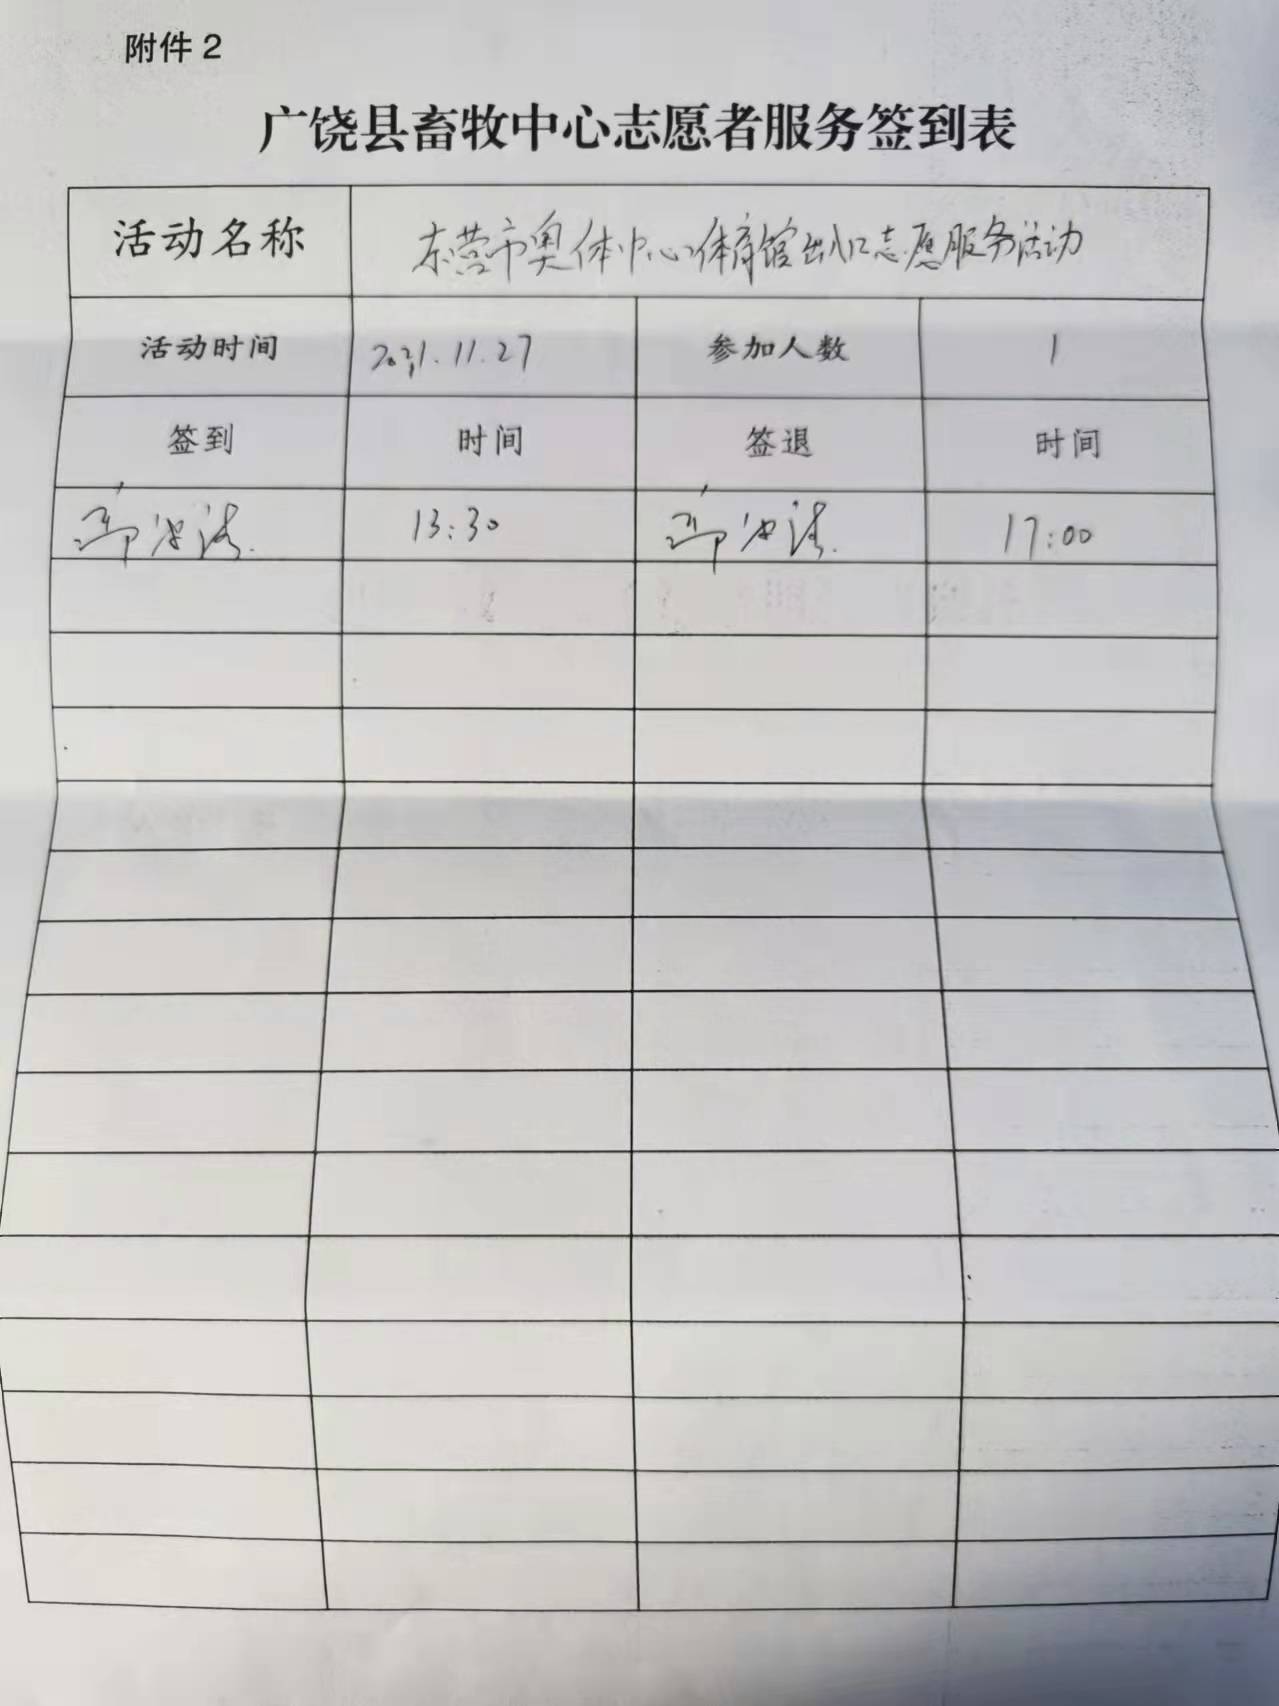 附件2
广饶县畜牧中心志愿者服务签到表
活动名称 东营市奥体中心体育馆出入口志愿服务活动
活动时间 2021.11.27 参加人数 1
签到 时间 签退 时间
13:30 17:00